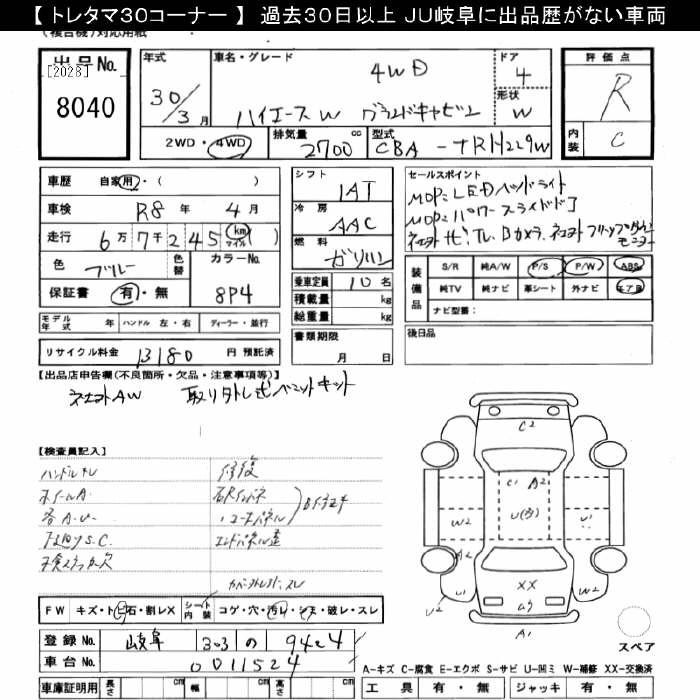 【トレタマ30コーナー】 過去30日以上 JU岐阜に出品歴がない車両
(複合機)対応用紙
出品No. [2028]
8040
年式
30/3月
車名・グレード
4WD
ハイエースW グランドキャビン
ドア
4
形状
W
2WD・4WD
排気量
2700 cc
型式
CBA-TRH229W
評価点
R
内装
C
車歴 自家用・( )
車検 R8年 4月
走行 6万7千245 (km マイル)( )
色
ブルー
色替
カラーNo.
8P4
保証書 有・無
シフト
1AT
冷房
AAC
燃料
ガソリン
乗車定員 10名
積載量 kg
総重量 kg
セールスポイント
MOP:LEDヘッドライト
MOP:パワースライドドア
装備品
S/R 純A/W P/S P/W ABS
純TV 純ナビ 革シート 外ナビ エアB
ナビ型番:
モデル年式 年 ハンドル 左・右 ディーラー・並行
書類期限
月 日
後日品
リサイクル料金 13180 円 預託済
【出品店申告欄(不良箇所・欠品・注意事項等)】
AW 取り外し式ベットキット
【検査員記入】
ハンドルスレ
ホイールA
各A.U.
下廻りS.C.
修復
コーナーパネル
エンドパネル歪
C2
C1 A2
W2
U1
A2
U2
U1
W2
XX
A1
FW キズ・ト・飛石・割レX シート内装 コゲ・穴・汚レ・シミ・破レ・スレ
登録No. 岐阜 303 の 9424
車台No. 0011524
車庫証明用 長さ cm 幅 cm 高さ cm
スペア
A-キズ C-腐食 E-エクボ S-サビ U-凹ミ W-補修 XX-交換済
工具 有・無 ジャッキ 有・無